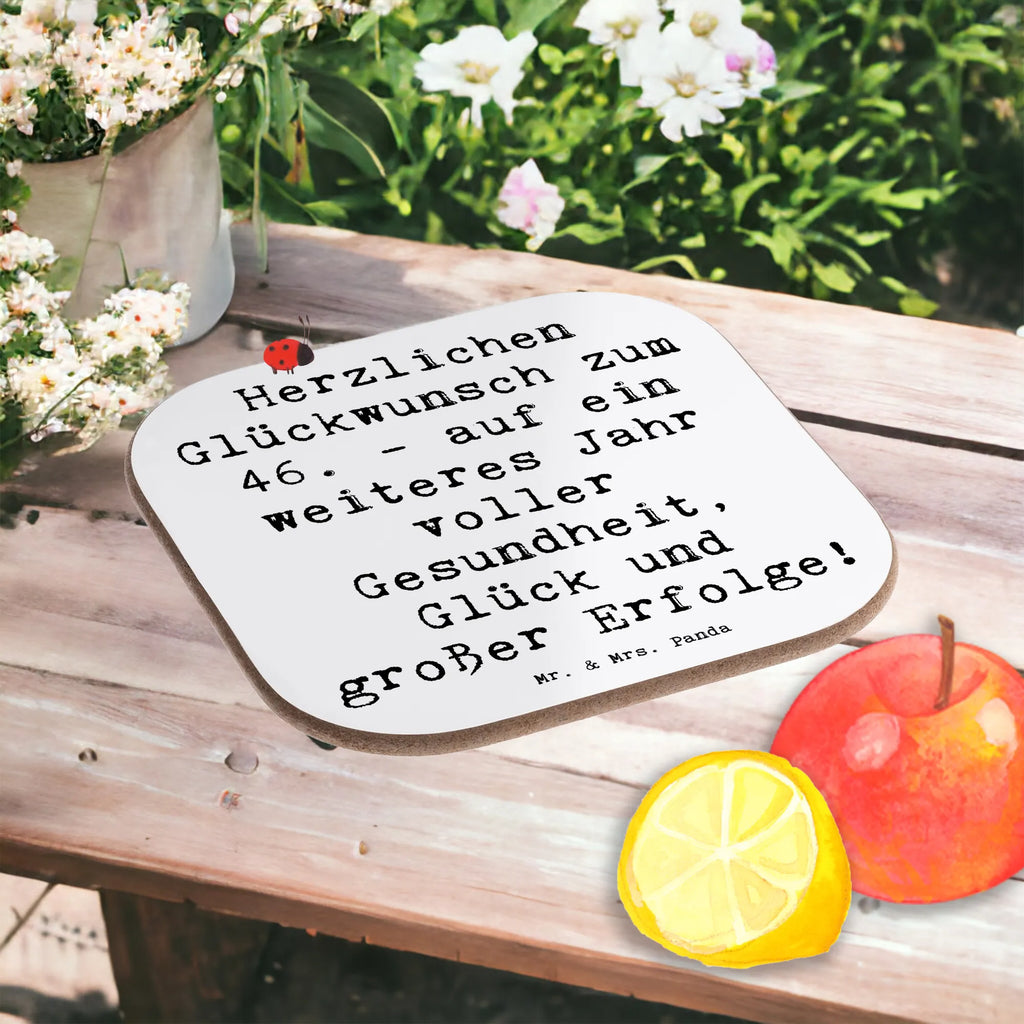 Herzlichen
Glückwunsch zum
46. - auf ein
weiteres Jahr
voller
Gesundheit,
Glück und
großer Erfolge!
Mr. & Mrs. Panda